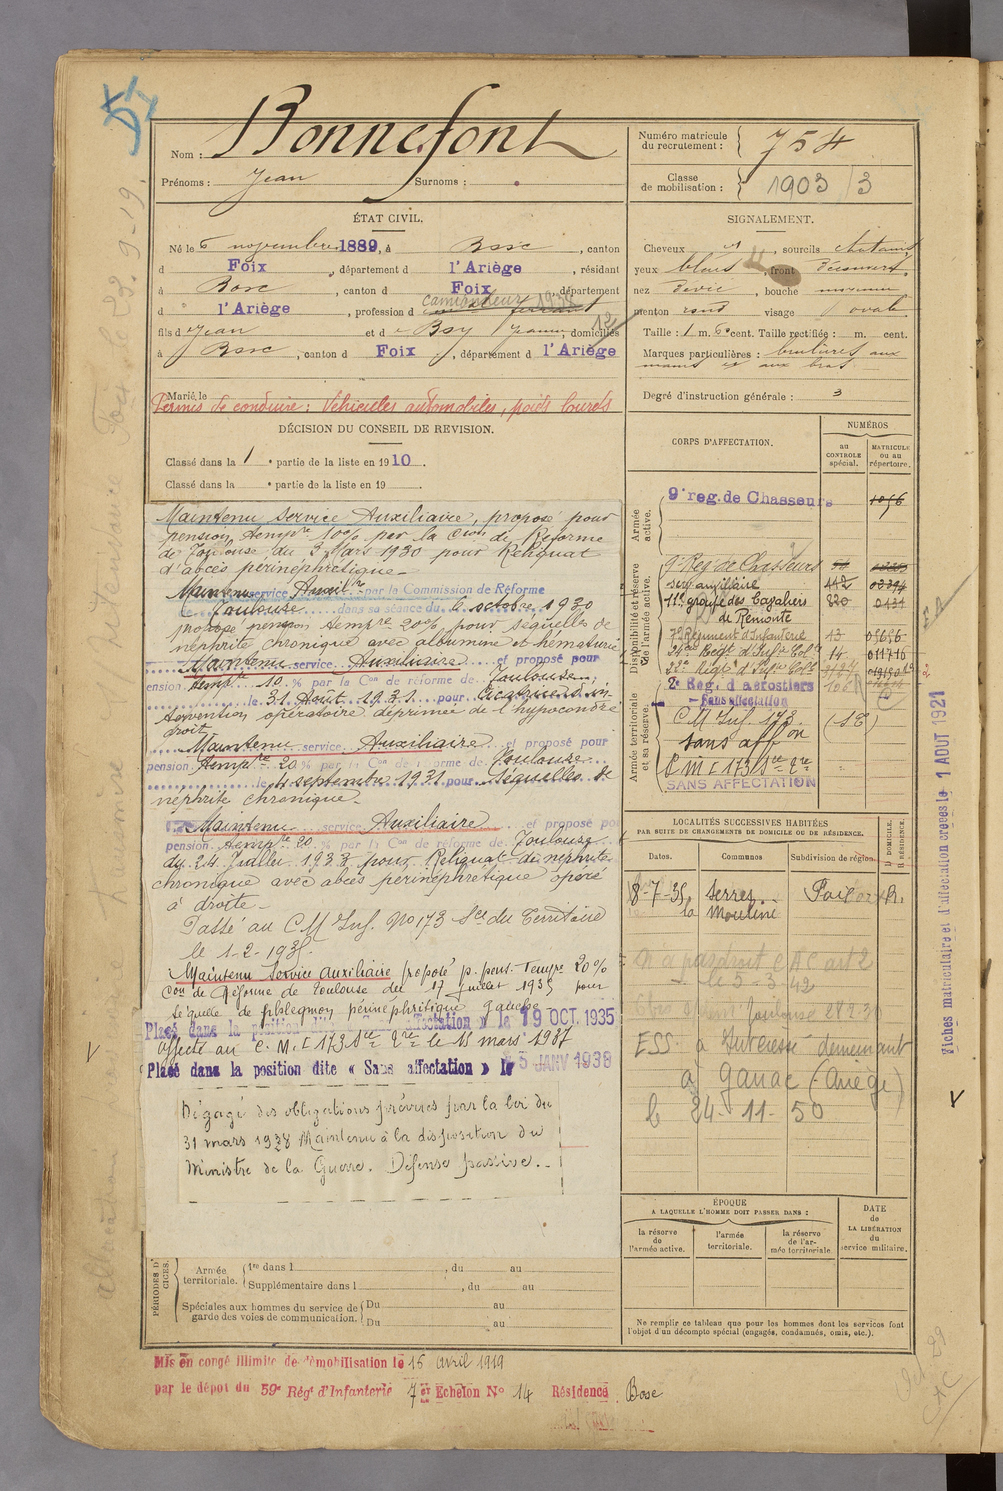 Nom : Bonnefont
Prénoms : Jean Surnoms :
ÉTAT CIVIL.
Né le 6 novembre 1889, à Bosc, canton
d Foix, département d l'Ariège, résidant
à Bosc, canton d Foix, département
d l'Ariège, profession d camionneur 1938
fils d Jean et d Bay Jeanne, domiciliés
à Bosc, canton d Foix, département d l'Ariège
Marié le
Permis de conduire : Véhicules automobiles, poids lourds
DÉCISION DU CONSEIL DE REVISION.
Classé dans la 1 e partie de la liste en 1910.
Classé dans la e partie de la liste en 19
Maintenu Service Auxiliaire, proposé pour
pension tempre 10% par la Cion de Réforme
de Toulouse du 3 Mars 1930 pour Reliquat
d'abcès périnéphrétique
Maintenu service Auxilre par la Commission de Réforme
de Toulouse dans sa séance du 6 octobre 1930
proposé pension tempre 20% pour séquelles de
néphrite chronique avec albumine et hématurie
Maintenu service Auxiliaire et proposé pour
pension temp re 10 % par la Con de réforme de Toulouse
le 31 Août 1931 pour Cicatrice d'in-
tervention opératoire déprimée de l'hypocondre
droit
Maintenu service Auxiliaire et proposé pour
pension temp re 20 % par la Con de réforme de Toulouse
le 4 septembre 1931 pour séquelles de
néphrite chronique
Maintenu service Auxiliaire et proposé po
pension temp 20 % par la Con de réforme de Toulouse
du 24 Juillet 1933 pour Reliquat de néphrite
chronique avec abcès périnéphrétique opéré
à droite
Passé au C M Inf. No 173 Sct du Territoire
le 1-2-1935
Maintenu Service Auxiliaire proposé p. pens. Tempre 20%
Con de Réforme de Toulouse du 17 juillet 1935 pour
séquelle de phlegmon périnéphrétique gauche
Placé dans la position dite « Sans affectation » le 19 OCT. 1935
affecté au C. M. I 173 le 15 mars 1937
Placé dans la position dite « Sans affectation » le 5 JANV 1938
Dégagé des obligations prévues par la loi du
31 mars 1928 Maintenu à la disposition du
Ministre de la Guerre. Défense passive.
PÉRIODES D'EXERCICES.
Armée territoriale.
1re dans l , du au
Supplémentaire dans l , du au
Spéciales aux hommes du service de garde des voies de communication.
Du au
Du au
Mis en congé illimité de démobilisation le 15 avril 1919
par le dépôt du 59e Régt d'Infanterie 7 er Echelon No 14 Résidence Bosc
Numéro matricule du recrutement : 754
Classe de mobilisation : 1903 /3
SIGNALEMENT.
Cheveux et, sourcils chatains
yeux bleus, front découvert
nez dévié, bouche moyenne
menton rond visage ovale
Taille : 1 m. cent. Taille rectifiée : m. cent.
Marques particulières : brulures aux
mains et aux bras
Degré d'instruction générale : 3
CORPS D'AFFECTATION.
NUMÉROS
au CONTROLE spécial.
MATRICULE ou au répertoire.
Armée active.
9e reg. de Chasseurs 1096
Disponibilité et réserve de l'armée active.
9e Reg de Chasseurs
serv auxiliaire 442 03394
11e groupe des Cavaliers 820 0431
de Remonte
Régiment d'Infanterie 13 05656
24me Régt d'Infie Colle 14 01716
22e Régt d'Infie Colle
Armée territoriale et sa réserve.
2e Reg. d aerostiers
- Sans affectation
C M Inf. 173. (18)
sans affon
C M I 173
SANS AFFECTATION
LOCALITÉS SUCCESSIVES HABITÉES
PAR SUITE DE CHANGEMENTS DE DOMICILE OU DE RÉSIDENCE.
Dates. Communes Subdivision de région. D. DOMICILE. R. RÉSIDENCE.
8-7-35 Serres Foix R.
la Mouline
N a pas droit C A C art 2
le 5-3-42
ESS. a Intéressé demeurant
à Ganac (Ariège)
le 24-11-50
ÉPOQUE
A LAQUELLE L'HOMME DOIT PASSER DANS :
DATE de LA LIBÉRATION du service militaire.
la réserve de l'armée active.
l'armée territoriale.
la réserve de l'armée territoriale.
Ne remplir ce tableau que pour les hommes dont les services font
l'objet d'un décompte spécial (engagés, condamnés, omis, etc.).
Fiches matriculaire et d'affectation créées le 1 AOUT 1921